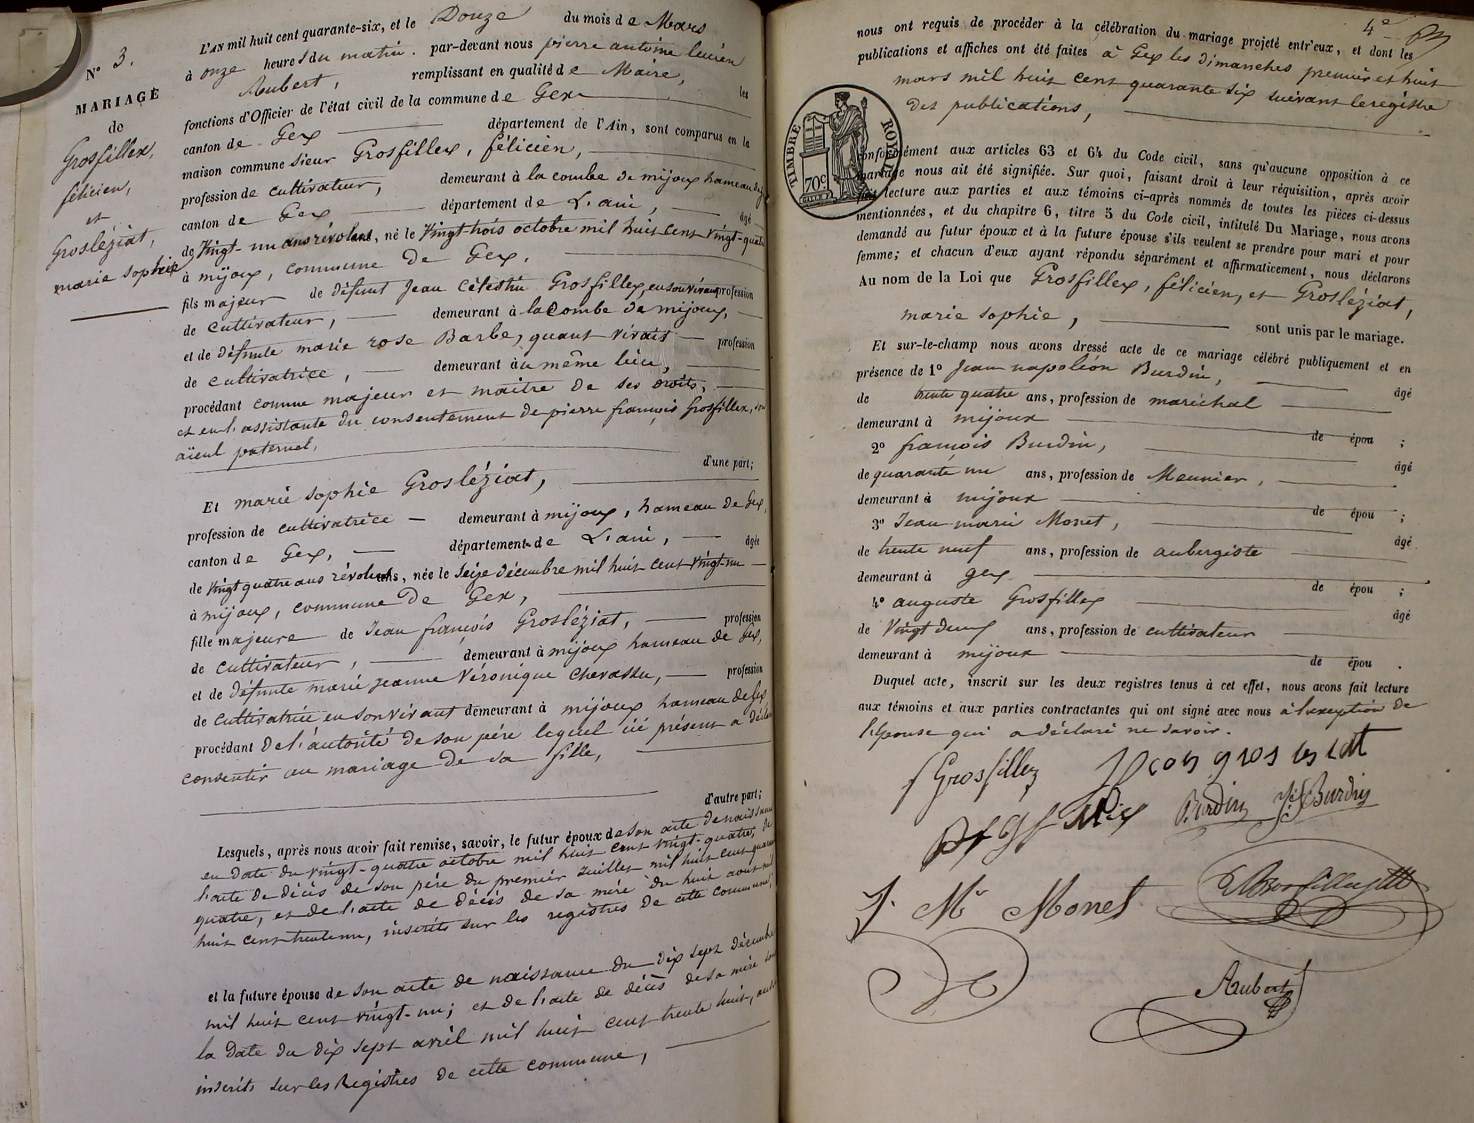 N° 3.
MARIAGE
de
Grosfillex,
félicien,
et
Grosléziat,
marie sophie
L'AN mil huit cent quarante-six, et le Douze du mois de Mars
à onze heures du matin. par-devant nous pierre antoine lucien
Aubert, remplissant en qualité de Maire, les
fonctions d'Officier de l'état civil de la commune de Gex
canton de Gex département de l'Ain, sont comparus en la
maison commune sieur Grosfillex, félicien,
profession de cultivateur, demeurant à la combe de mijoux hameau de
canton de Gex département de L'ain, âgé
de Vingt-un ans révolus, né le Vingt trois octobre mil huit cent vingt-quatre
à mijoux, commune de Gex.
fils majeur de défunt Jean Célestin Grosfillex en son vivant profession
de cultivateur, demeurant à la Combe de mijoux,
et de défunte marie rose Barbe, quant vivait profession
de cultivatrice, demeurant au même lieu,
procédant comme majeur et maître de ses droits,
et en l'assistante du consentement de pierre françois Grosfillex, son
aïeul paternel,
d'une part;
Et marie sophie Grosléziat,
profession de cultivatrice demeurant à mijoux, hameau de Gex,
canton de Gex, département de L'ain, âgée
de Vingt quatre ans révolus, née le Seize décembre mil huit cent vingt-un
à mijoux, commune de Gex,
fille majeure de Jean françois Grosléziat, profession
de cultivateur, demeurant à mijoux hameau de Gex,
et de défunte marie jeanne Véronique Chevassu, profession
de cultivatrice en son vivant demeurant à mijoux hameau de Gex
procédant de l'autorité de son père lequel ici présent a déclaré
consentir au mariage de sa fille,
d'autre part;
Lesquels, après nous avoir fait remise, savoir, le futur époux de son acte de naissance
en date du vingt-quatre octobre mil huit cent vingt-quatre, de
l'acte de décès de son père du premier juillet mil huit cent quarante
quatre, et de l'acte de décès de sa mère du huit aout mil
huit cent trente un, inscrits sur les registres de cette commune,
et la future épouse de son acte de naissance du dix sept décembre
mil huit cent vingt-un; et de l'acte de décès de sa mère sous
la date du dix sept avril mil huit cent trente huit,
inscrits sur les Registres de cette commune,
4e
nous ont requis de procéder à la célébration du mariage projeté entr'eux, et dont les
publications et affiches ont été faites à Gex les dimanches premier et huit
mars mil huit cent quarante six suivant le registre
des publications,
TIMBRE ROYAL
70c.
conformément aux articles 63 et 64 du Code civil, sans qu'aucune opposition à ce
mariage nous ait été signifiée. Sur quoi, faisant droit à leur réquisition, après avoir
fait lecture aux parties et aux témoins ci-après nommés de toutes les pièces ci-dessus
mentionnées, et du chapitre 6, titre 5 du Code civil, intitulé Du Mariage, nous avons
demandé au futur époux et à la future épouse s'ils veulent se prendre pour mari et pour
femme; et chacun d'eux ayant répondu séparément et affirmativement, nous déclarons
Au nom de la Loi que Grosfillex, félicien, et Grosléziat,
marie sophie, sont unis par le mariage.
Et sur-le-champ nous avons dressé acte de ce mariage célébré publiquement et en
présence de 1° Jean napoléon Burdin, âgé
de trente quatre ans, profession de maréchal
demeurant à mijoux de épou ;
2° françois Burdin, âgé
de quarante un ans, profession de Meunier,
demeurant à mijoux de épou ;
3° Jean marie Monet, âgé
de trente neuf ans, profession de aubergiste
demeurant à gex de épou ;
4° auguste Grosfillex âgé
de Vingt deux ans, profession de cultivateur
demeurant à mijoux de épou .
Duquel acte, inscrit sur les deux registres tenus à cet effet, nous avons fait lecture
aux témoins et aux parties contractantes qui ont signé avec nous à l'exception de
l'épouse qui a déclaré ne savoir.
f Grosfillex
Burdin Burdin
J. Mie Monet
Aubert